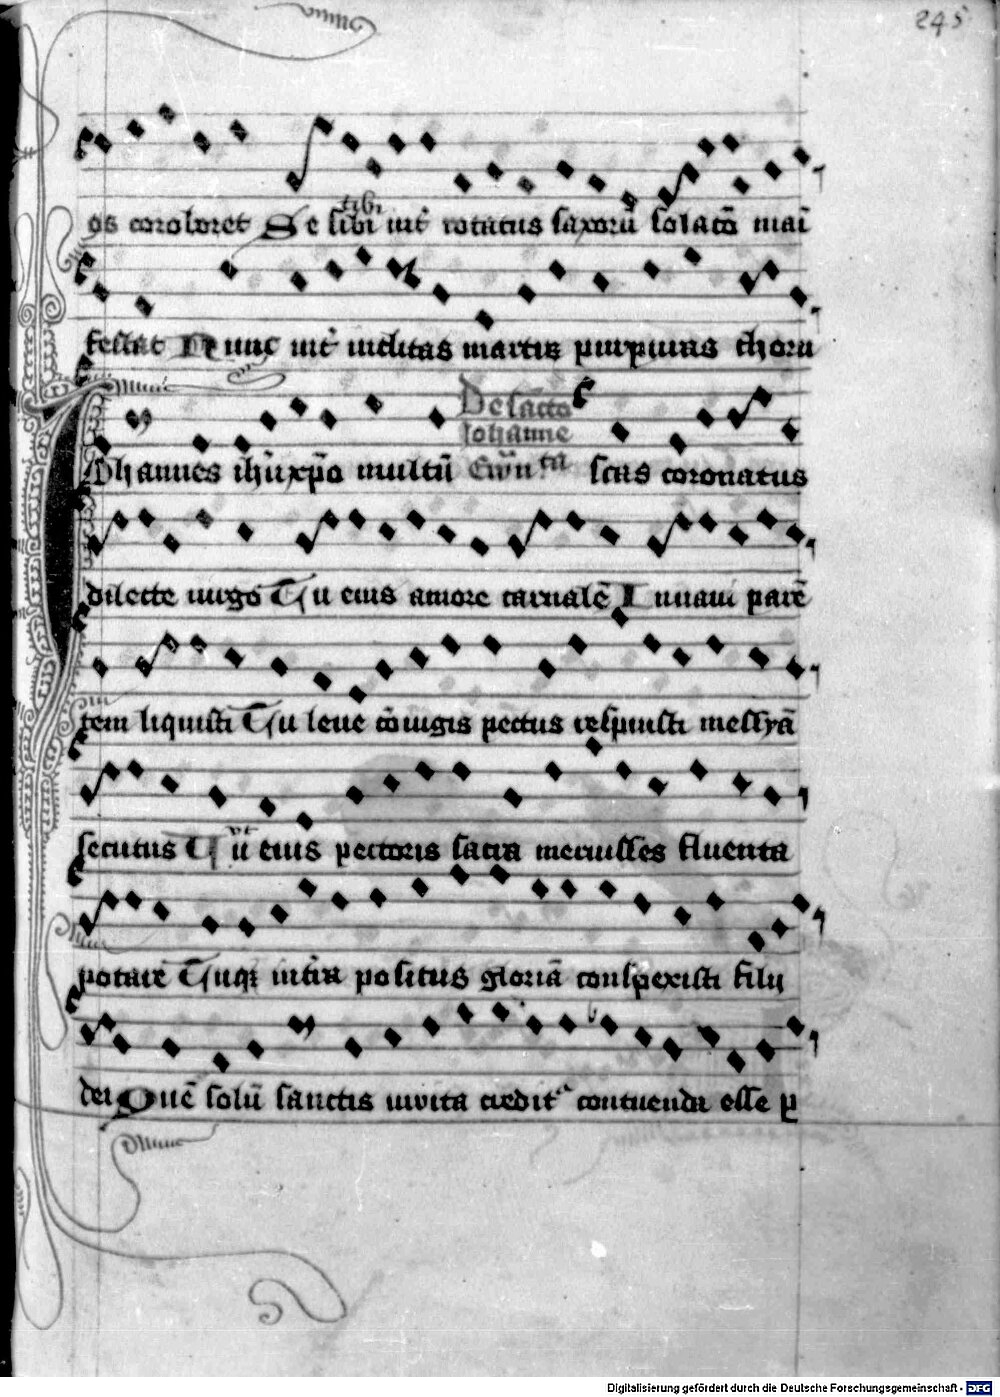 245
os coroloret Se sibi tibi iūt rotatus saxorū solatō mani
festat Nunc iūt inclitas martir purpuras choru
De sācto
Johanne
Johannes ihū xp̄o multū Ewā scūs coronatus
dilecte uirgo Tu eius amore carnalē In naui parē
tem liquisti Tu leue cōiugis pectus respuisti messyā
secutus Tu vt eius pectoris sacra meruisses fluenta
potare Tuqȝ in tr̄a positus gloriā conspexisti filij
dei Quē solū sanctis in vita creditᵃ contuenda esse p
Digitalisierung gefördert durch die Deutsche Forschungsgemeinschaft - DFG